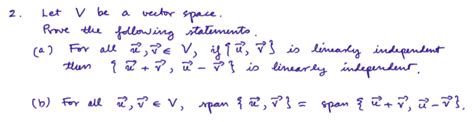 2. Let V be a vector space.
Prove the following statements.
(a) For all u⃗, v⃗ ∈ V, if {u⃗, v⃗} is linearly independent
then {u⃗ + v⃗, u⃗ - v⃗} is linearly independent.
(b) For all u⃗, v⃗ ∈ V, span {u⃗, v⃗} = span {u⃗ + v⃗, u⃗ - v⃗}.